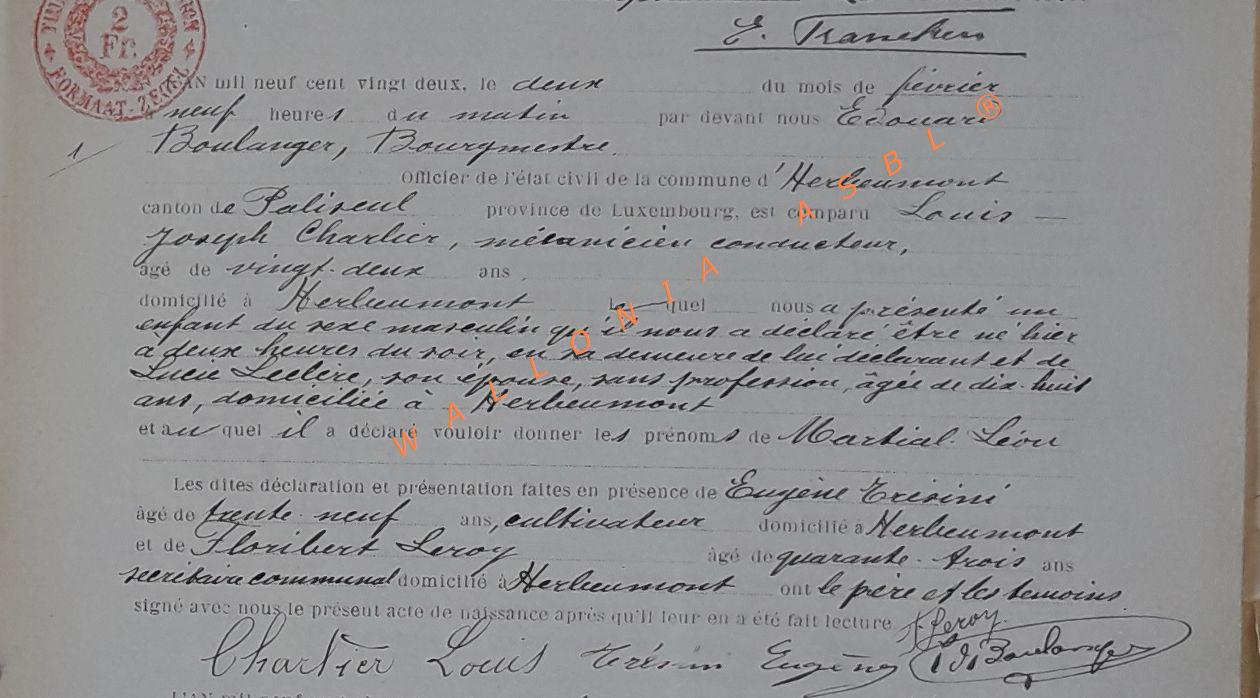 2
Fr.
FORMAAT-ZEGEL
L'AN mil neuf cent vingt deux, le deux du mois de février
à neuf heures du matin par devant nous Edouard
1
Boulanger, Bourgmestre.
Officier de l'état civil de la commune d'Herbeumont
canton de Paliseul province de Luxembourg, est comparu Louis —
Joseph Charlier, mécanicien conducteur,
âgé de vingt-deux ans,
domicilié à Herbeumont lequel nous a présenté un
enfant du sexe masculin qu'il nous a déclaré être né hier
à deux heures du soir, en sa demeure de lui déclarant et de
Lucie Leclère, son épouse, sans profession, âgée de dix-huit
ans, domiciliée à Herbeumont
et auquel il a déclaré vouloir donner les prénoms de Martial Léon
Les dites déclaration et présentation faites en présence de Eugène Trésini
âgé de trente-neuf ans, cultivateur domicilié à Herbeumont
et de Floribert Leroy âgé de quarante-trois ans
secrétaire communal domicilié à Herbeumont ont le père et les témoins
signé avec nous le présent acte de naissance après qu'il leur en a été fait lecture.
F Leroy.
Charlier Louis Trésini Eugène Boulanger
WALLONIA ASBL ®